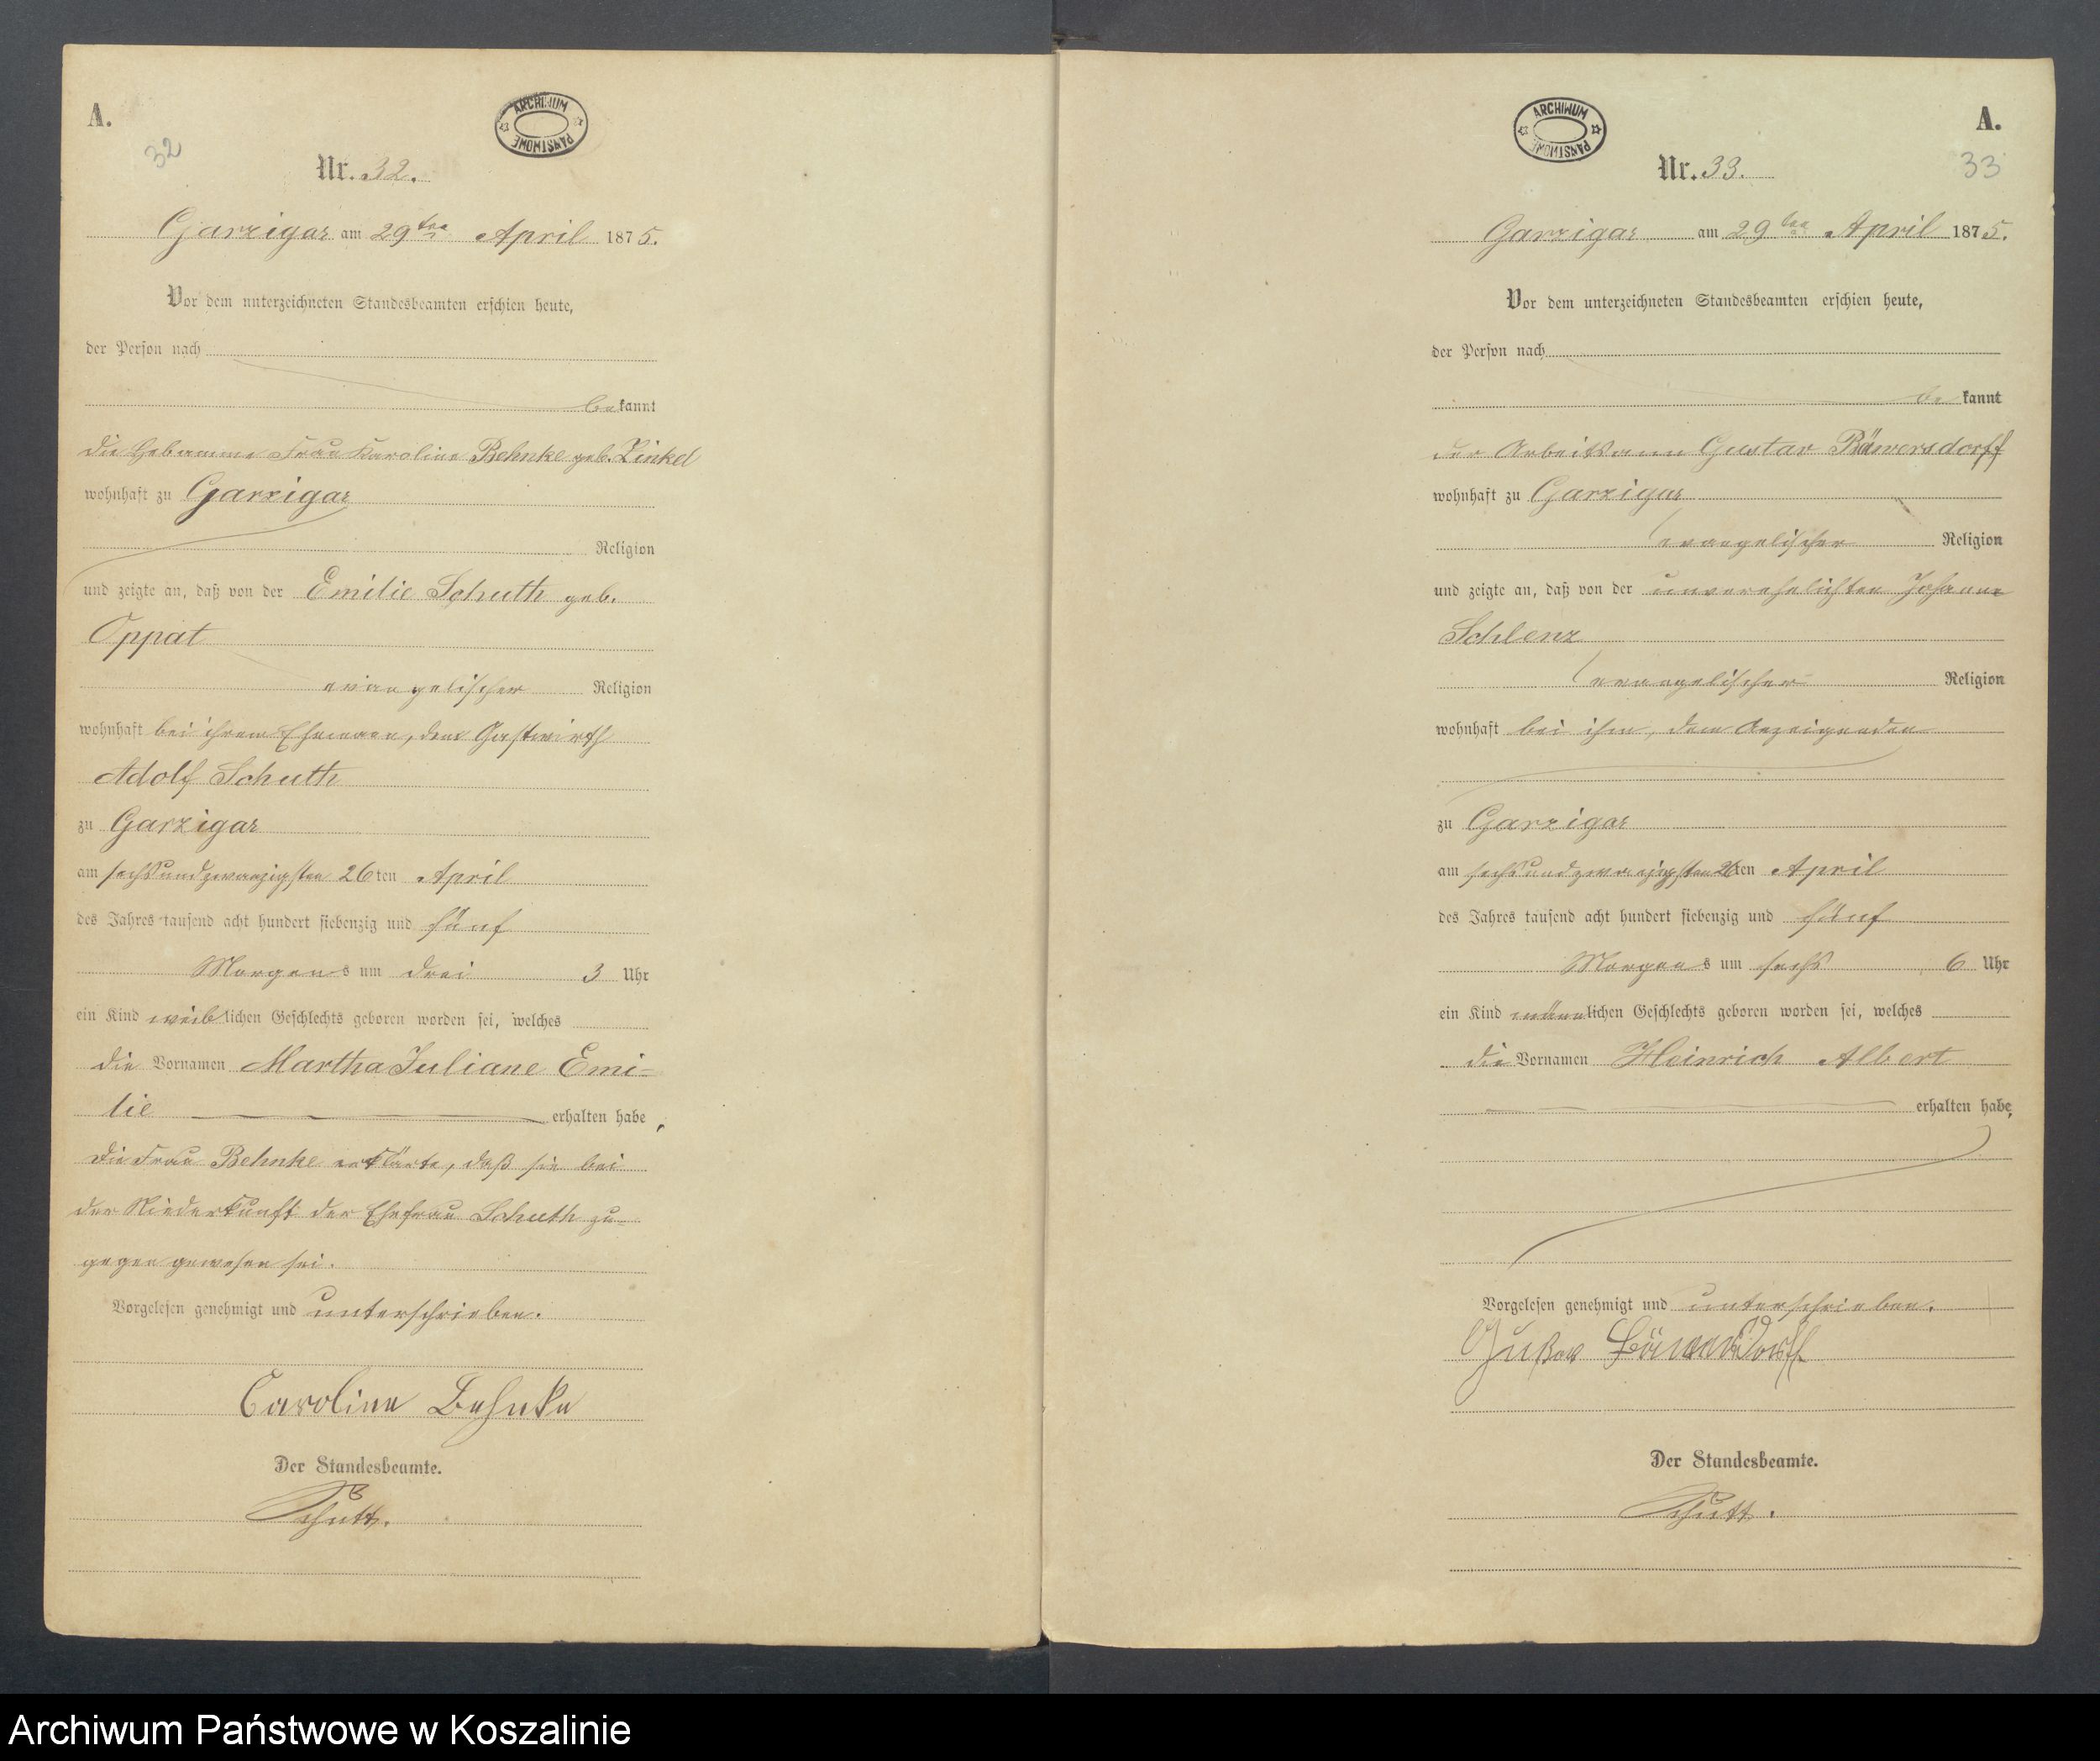 A.
ARCHIWUM PAŃSTWOWE
32
Nr. 32.
Garzigar am 29ten April 1875.
Vor dem unterzeichneten Standesbeamten erschien heute,
der Person nach
bekannt
die Hebamme Frau Karoline Behnke geb. Zinkel
wohnhaft zu Garzigar
Religion
und zeigte an, daß von der Emilie Schuth geb.
Oppat
evangelischer Religion
wohnhaft bei ihrem Ehemann, dem Gastwirth
Adolf Schuth
zu Garzigar
am sechsundzwanzigsten 26ten April
des Jahres tausend acht hundert siebenzig und fünf
Morgens um drei 3 Uhr
ein Kind weiblichen Geschlechts geboren worden sei, welches
die Vornamen Martha Juliane Emi-
lie erhalten habe,
die Frau Behnke erklärte, daß sie bei
der Niederkunft der Ehefrau Schuth zu-
gegen gewesen sei.
Vorgelesen genehmigt und unterschrieben.
Caroline Behnke
Der Standesbeamte.
ARCHIWUM PAŃSTWOWE
A.
33
Nr. 33.
Garzigar am 29ten April 1875.
Vor dem unterzeichneten Standesbeamten erschien heute,
der Person nach
bekannt
der Arbeitsmann Gustav Bäwersdorff
wohnhaft zu Garzigar
evangelischer Religion
und zeigte an, daß von der unverehelichten Johanne
Schlenz
evangelischer Religion
wohnhaft bei ihm, dem Anzeigenden
zu Garzigar
am sechsundzwanzigsten 26ten April
des Jahres tausend acht hundert siebenzig und fünf
Morgens um sechs 6 Uhr
ein Kind männlichen Geschlechts geboren worden sei, welches
die Vornamen Heinrich Albert
erhalten habe,
Vorgelesen genehmigt und unterschrieben.
Gustav Bäwersdorff
Der Standesbeamte.
Archiwum Państwowe w Koszalinie